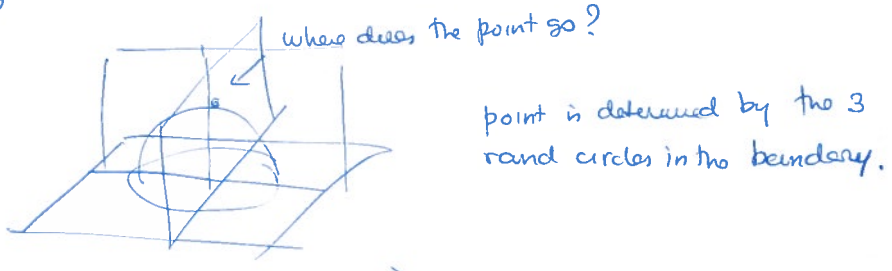 where does the point go?
point is determined by the 3
round circles in the boundary.